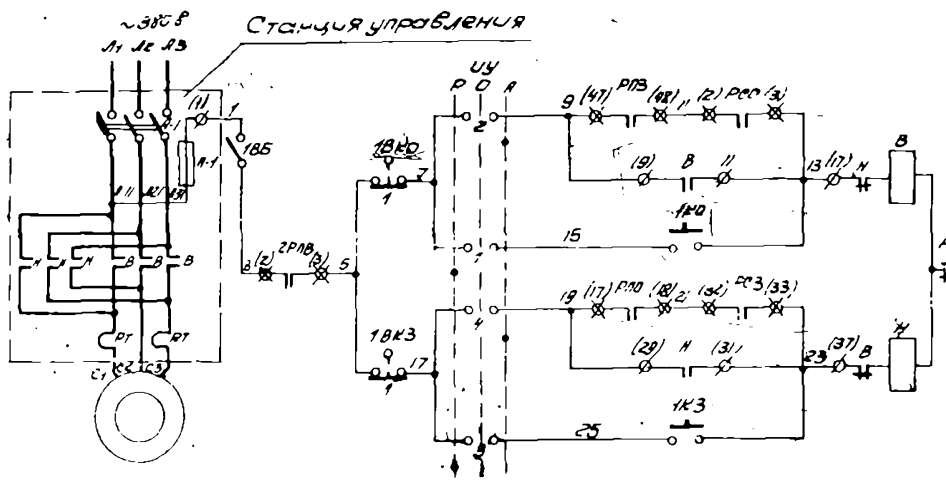 ~380 В
Станция управления
Л1 Л2 Л3
(1) 1
А-1
1ВБ
Л-1
Л11 Л21 Л31
И И И В В В
РТ РТ
С1 С2 С3
3 (2) 2РПВ (3) 5
1ВКО
1
7
1ВКЗ
1
17
ИУ
Р О А
2
1
4
3
9 (47) РПЗ (48) 11 (2) РСО (3)
(9) В 11
13 (17) Н
В
15
1КО
19 (17) РПО (18) 21 (32) РСЗ (33)
(29) Н (31)
23 (37) В
Н
25
1КЗ
А